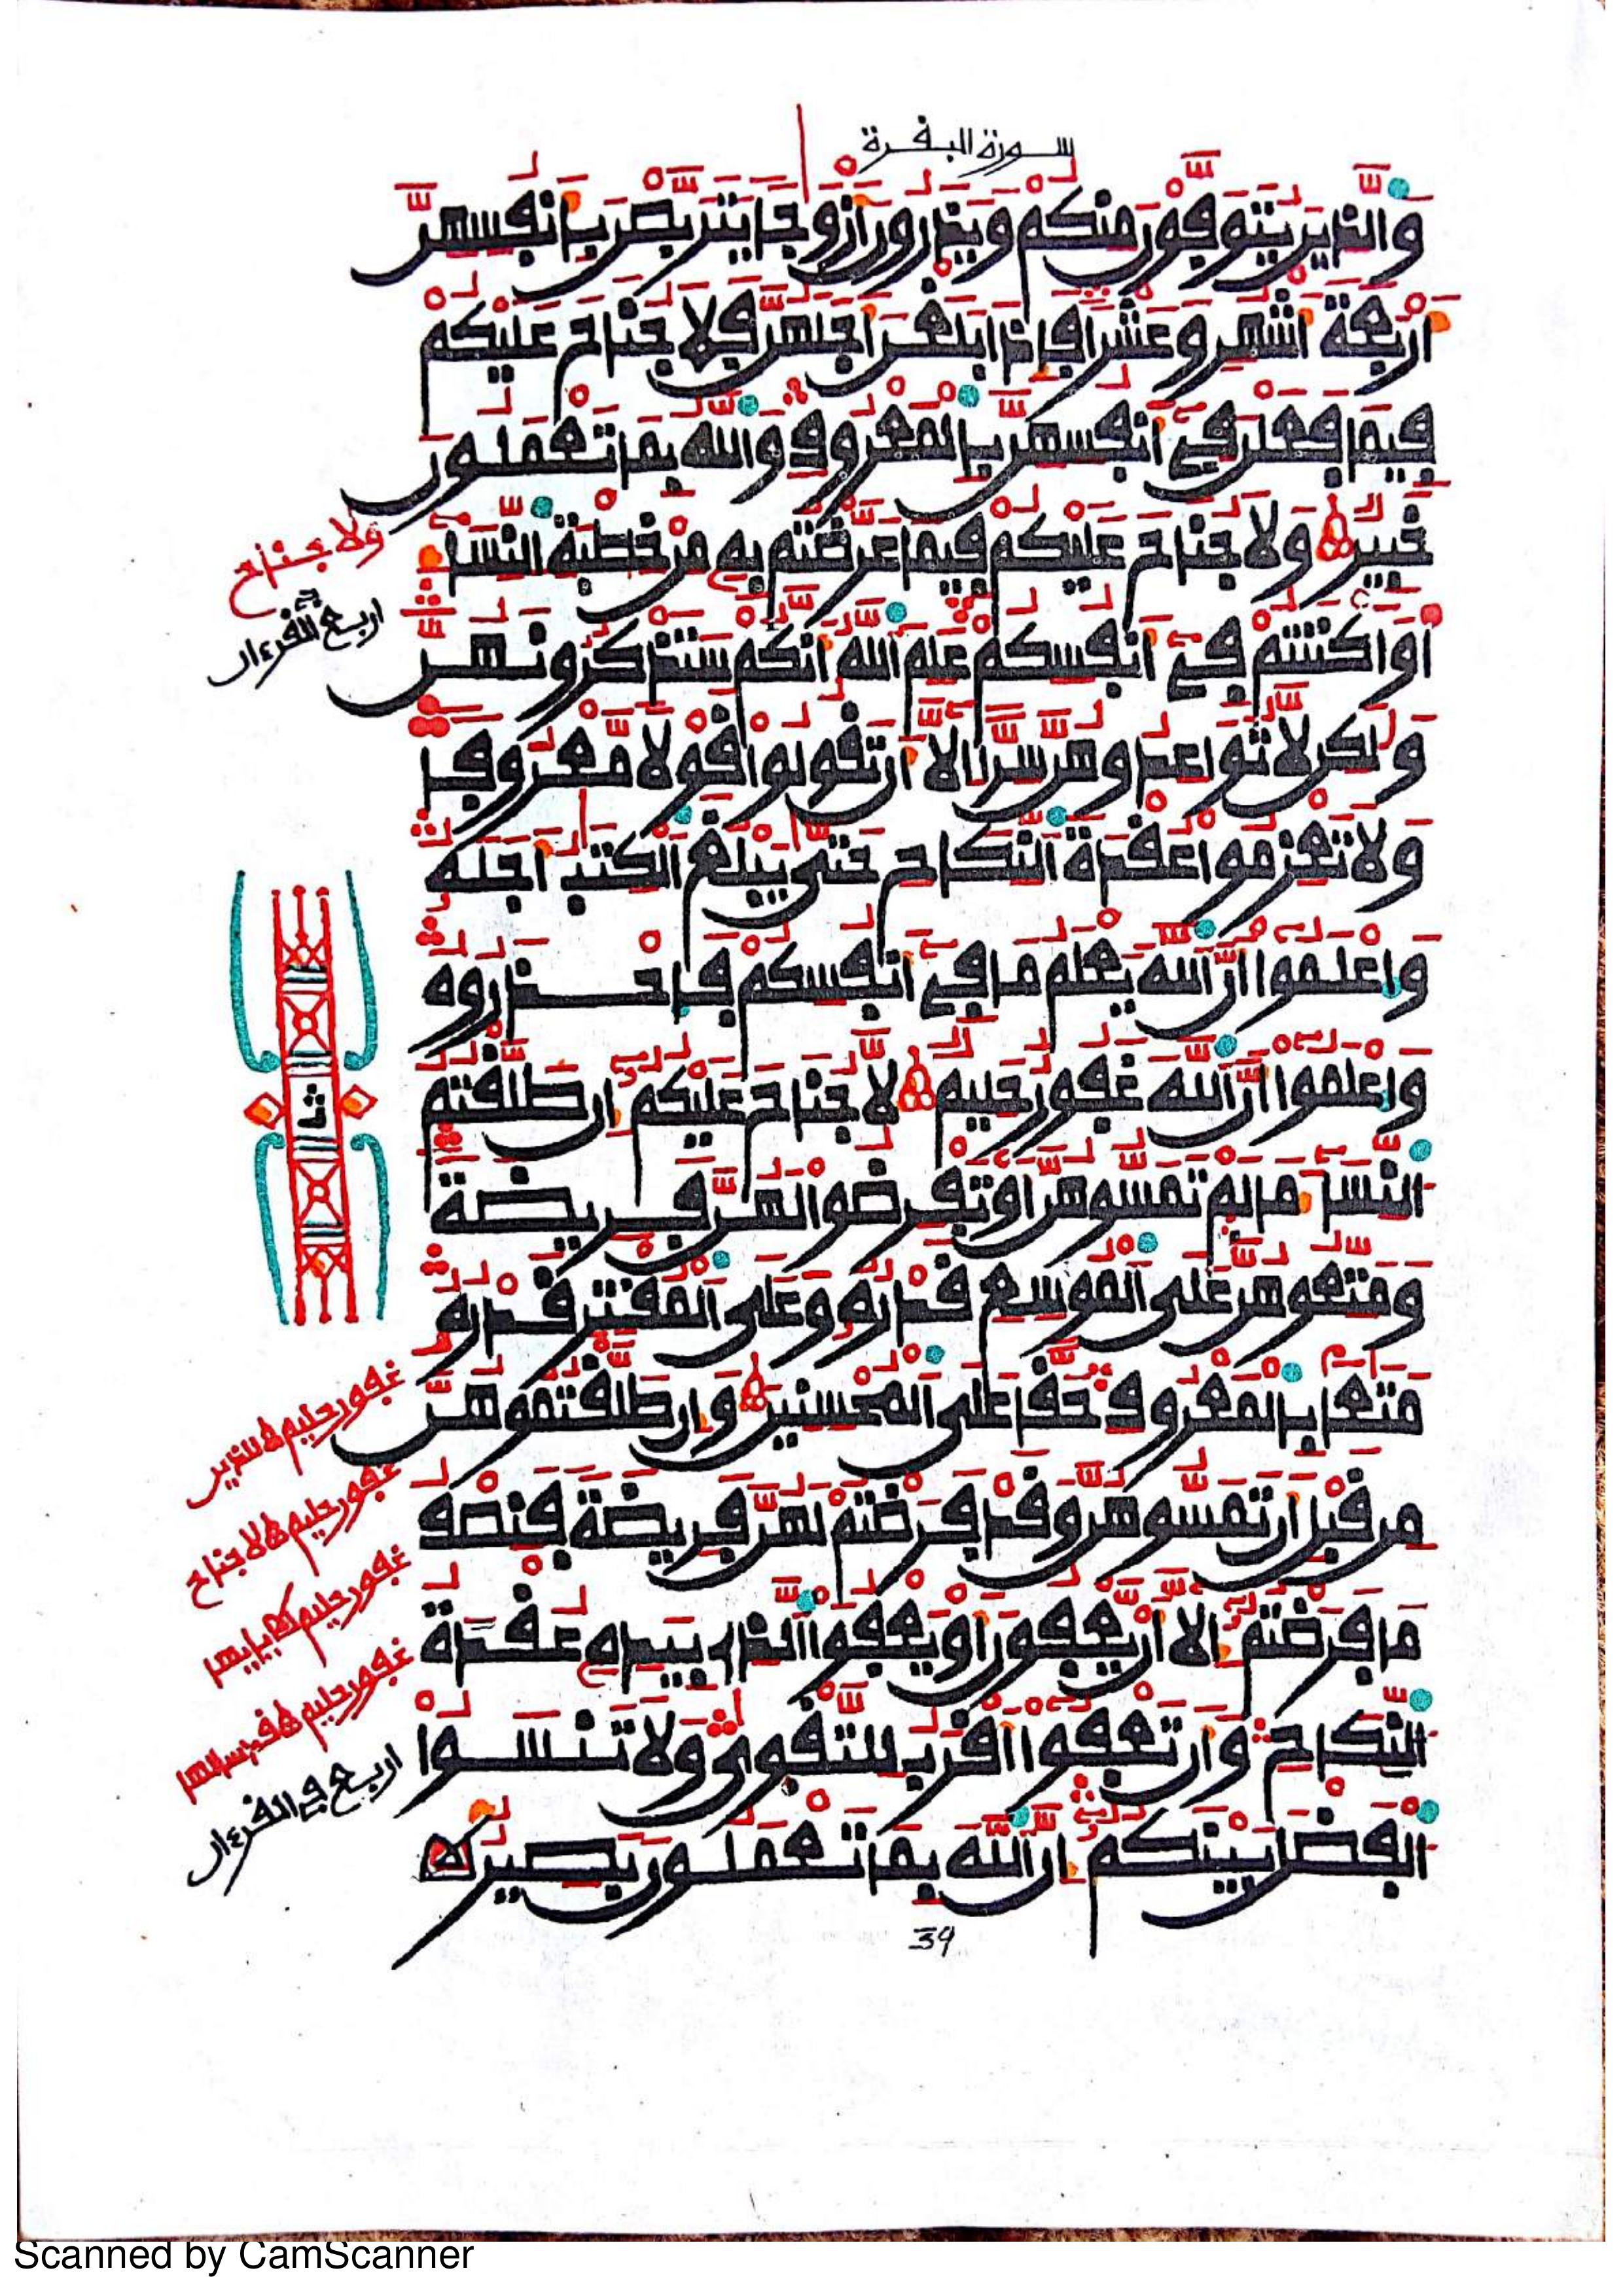 سورة البقرة
والذين يتوفون منكم ويذرون أزوجا يتربصن بأنفسهن
أربعة أشهر وعشرا فإذا بلغن أجلهن فلا جناح عليكم
فيما فعلن في أنفسهن بالمعروف والله بما تعملون
خبير ولا جناح عليكم فيما عرضتم به من خطبة النساء
أو أكننتم في أنفسكم علم الله أنكم ستذكرونهن
ولكن لا تواعدوهن سرا إلا أن تقولوا قولا معروفا
ولا تعزموا عقدة النكاح حتى يبلغ الكتب أجله
واعلموا أن الله يعلم ما في أنفسكم فاحذروه
واعلموا أن الله غفور حليم لا جناح عليكم إن طلقتم
النساء ما لم تمسوهن أو تفرضوا لهن فريضة
ومتعوهن على الموسع قدره وعلى المقتر قدره
متعا بالمعروف حقا على المحسنين وإن طلقتموهن
من قبل أن تمسوهن وقد فرضتم لهن فريضة فنصف
ما فرضتم إلا أن يعفون أو يعفوا الذي بيده عقدة
النكاح وأن تعفوا أقرب للتقوى ولا تنسوا
الفضل بينكم إن الله بما تعملون بصير
39
ولا جناح
اربع في القرءان
ثمن
غفور حليم للذين
غفور حليم لا جناح
غفور حليم يأيها
غفور حليم قد سألها
اربع في القرءان
Scanned by CamScanner